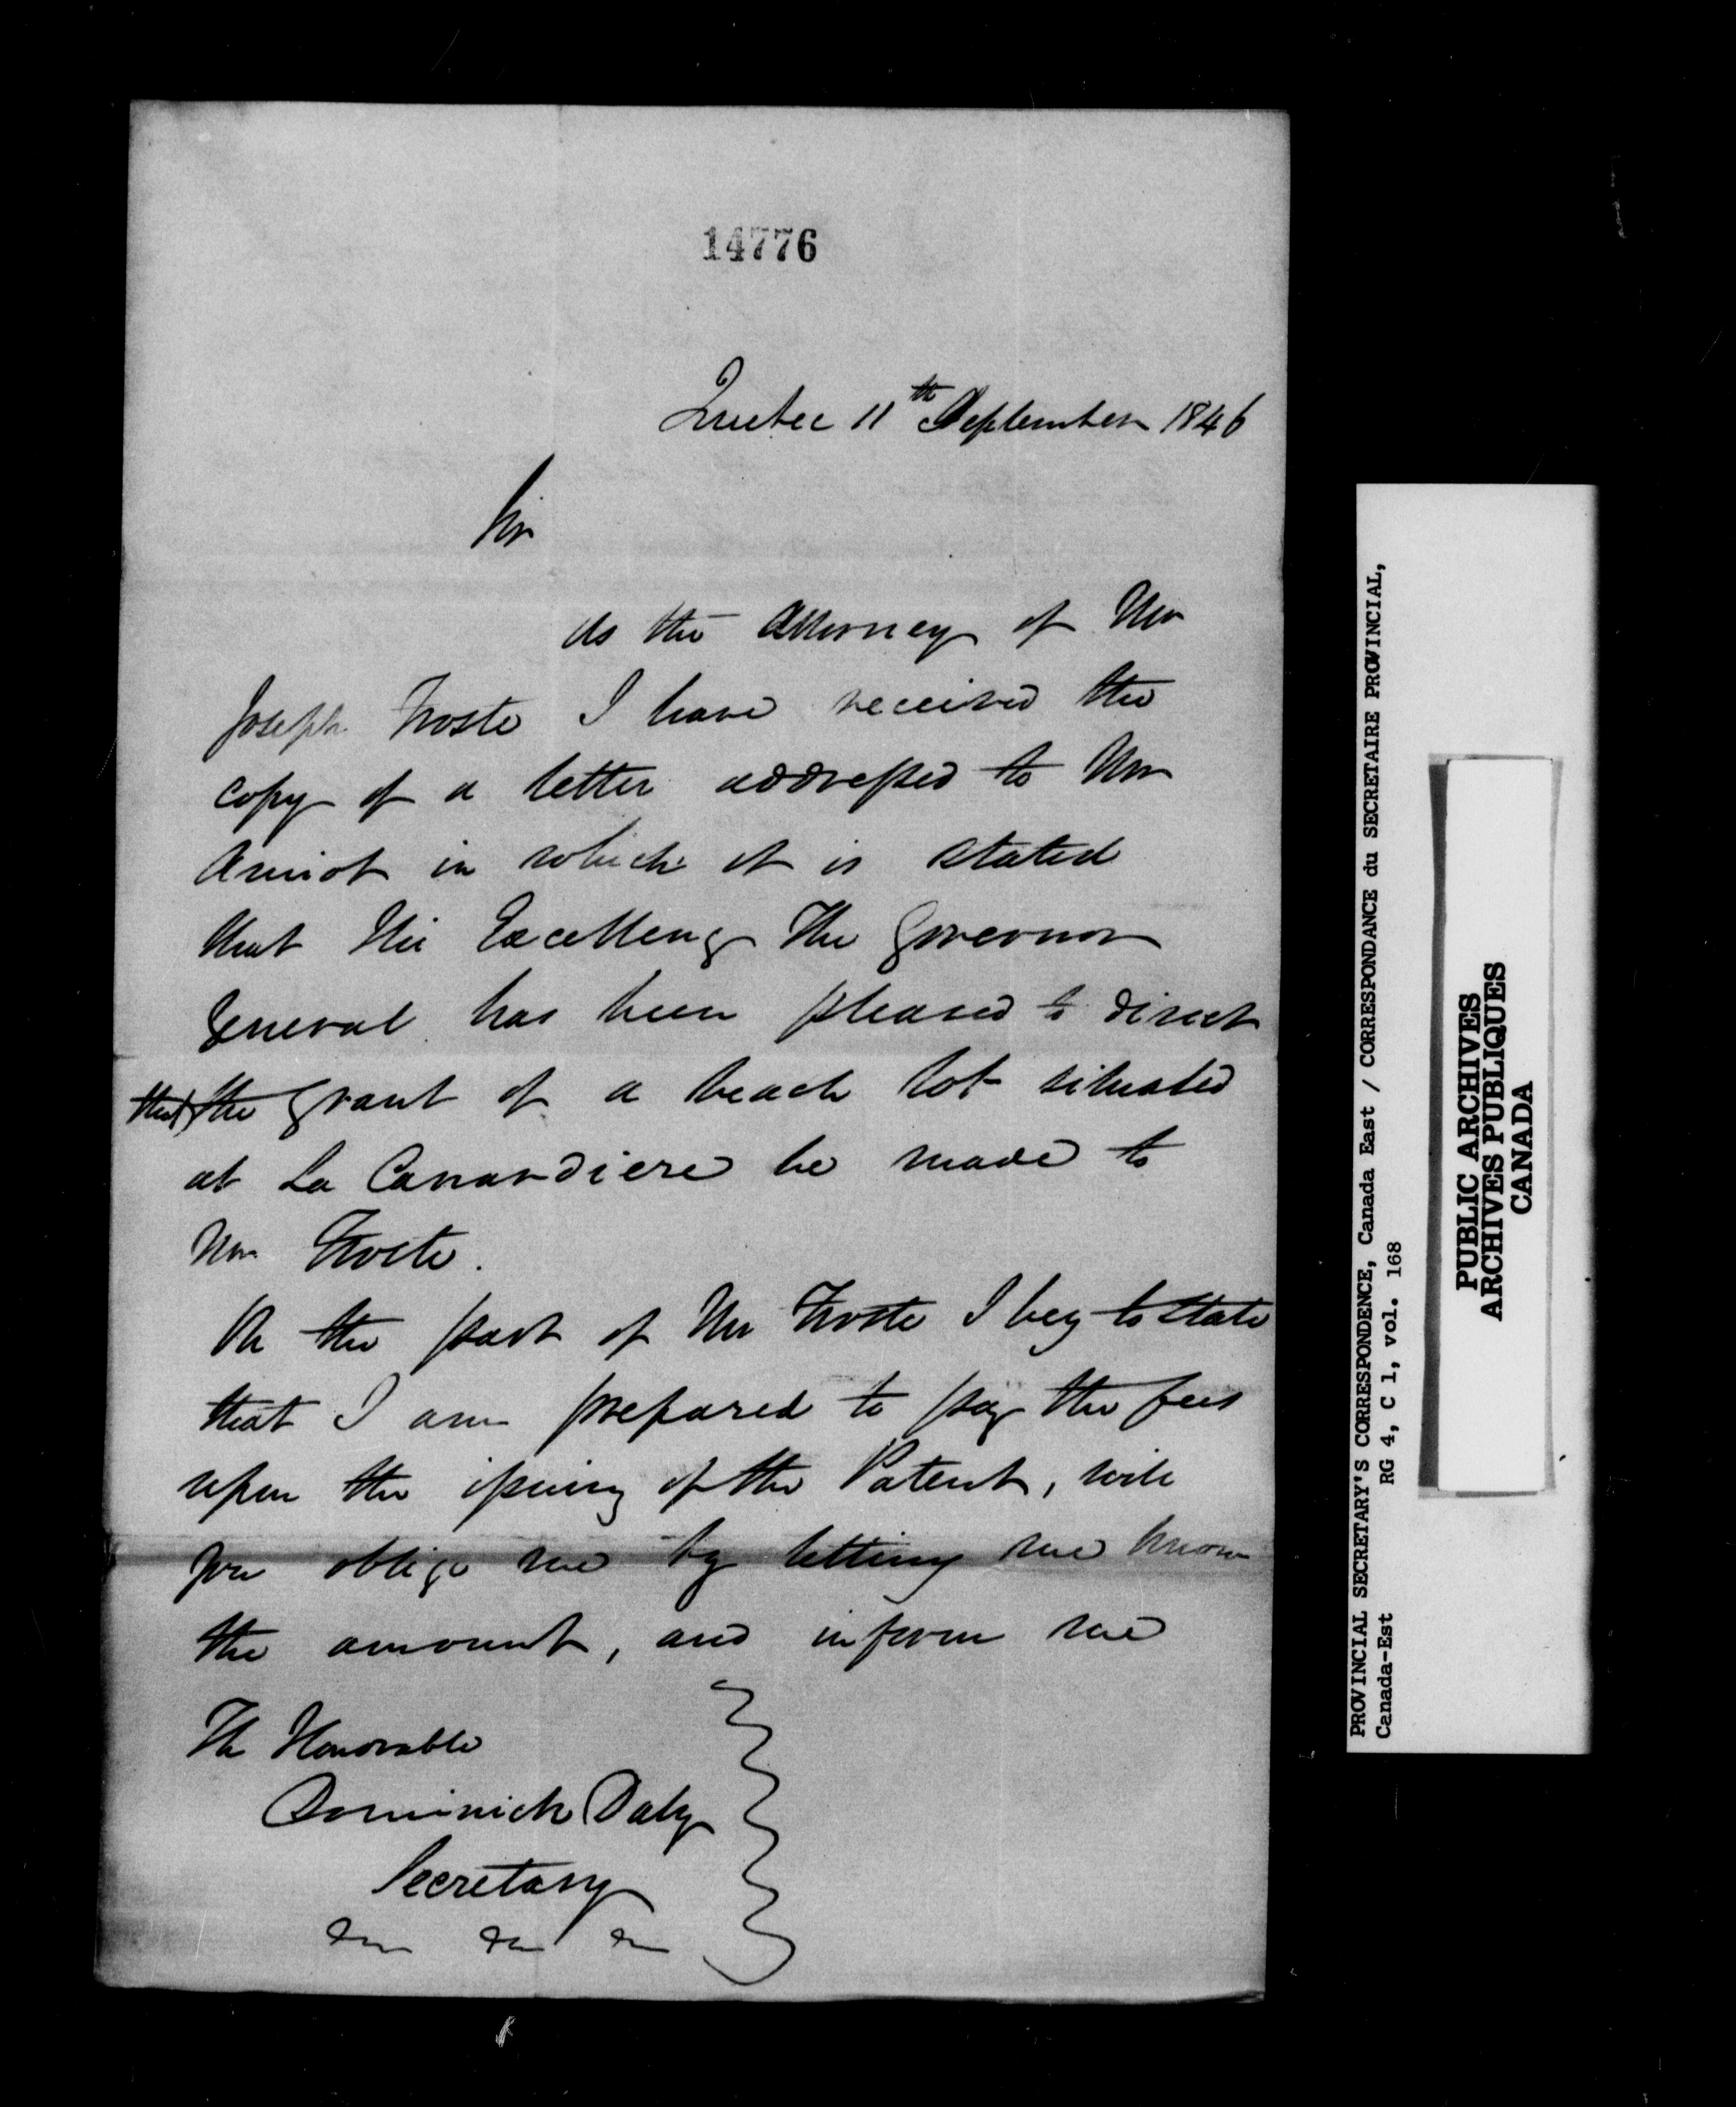 14776
Quebec 11th September 1846
Sir
As the Attorney of Mr
Joseph Froste I have received the
copy of a letter addressed to Mr
Amiot in which it is stated
that His Excellency The Governor
General has been pleased to direct
that the grant of a beach lot situated
at La Canardiere be made to
Mr Froste.
On the part of Mr Froste I beg to state
that I am prepared to pay the fees
upon the issuing of the Patent, will
you oblige me by letting me know
the amount, and inform me
The Honorable
Dominick Daly
Secretary
&c &c &c
PROVINCIAL SECRETARY'S CORRESPONDENCE, Canada East / CORRESPONDANCE du SECRETAIRE PROVINCIAL,
Canada-Est RG 4, C 1, vol. 168
PUBLIC ARCHIVES
ARCHIVES PUBLIQUES
CANADA